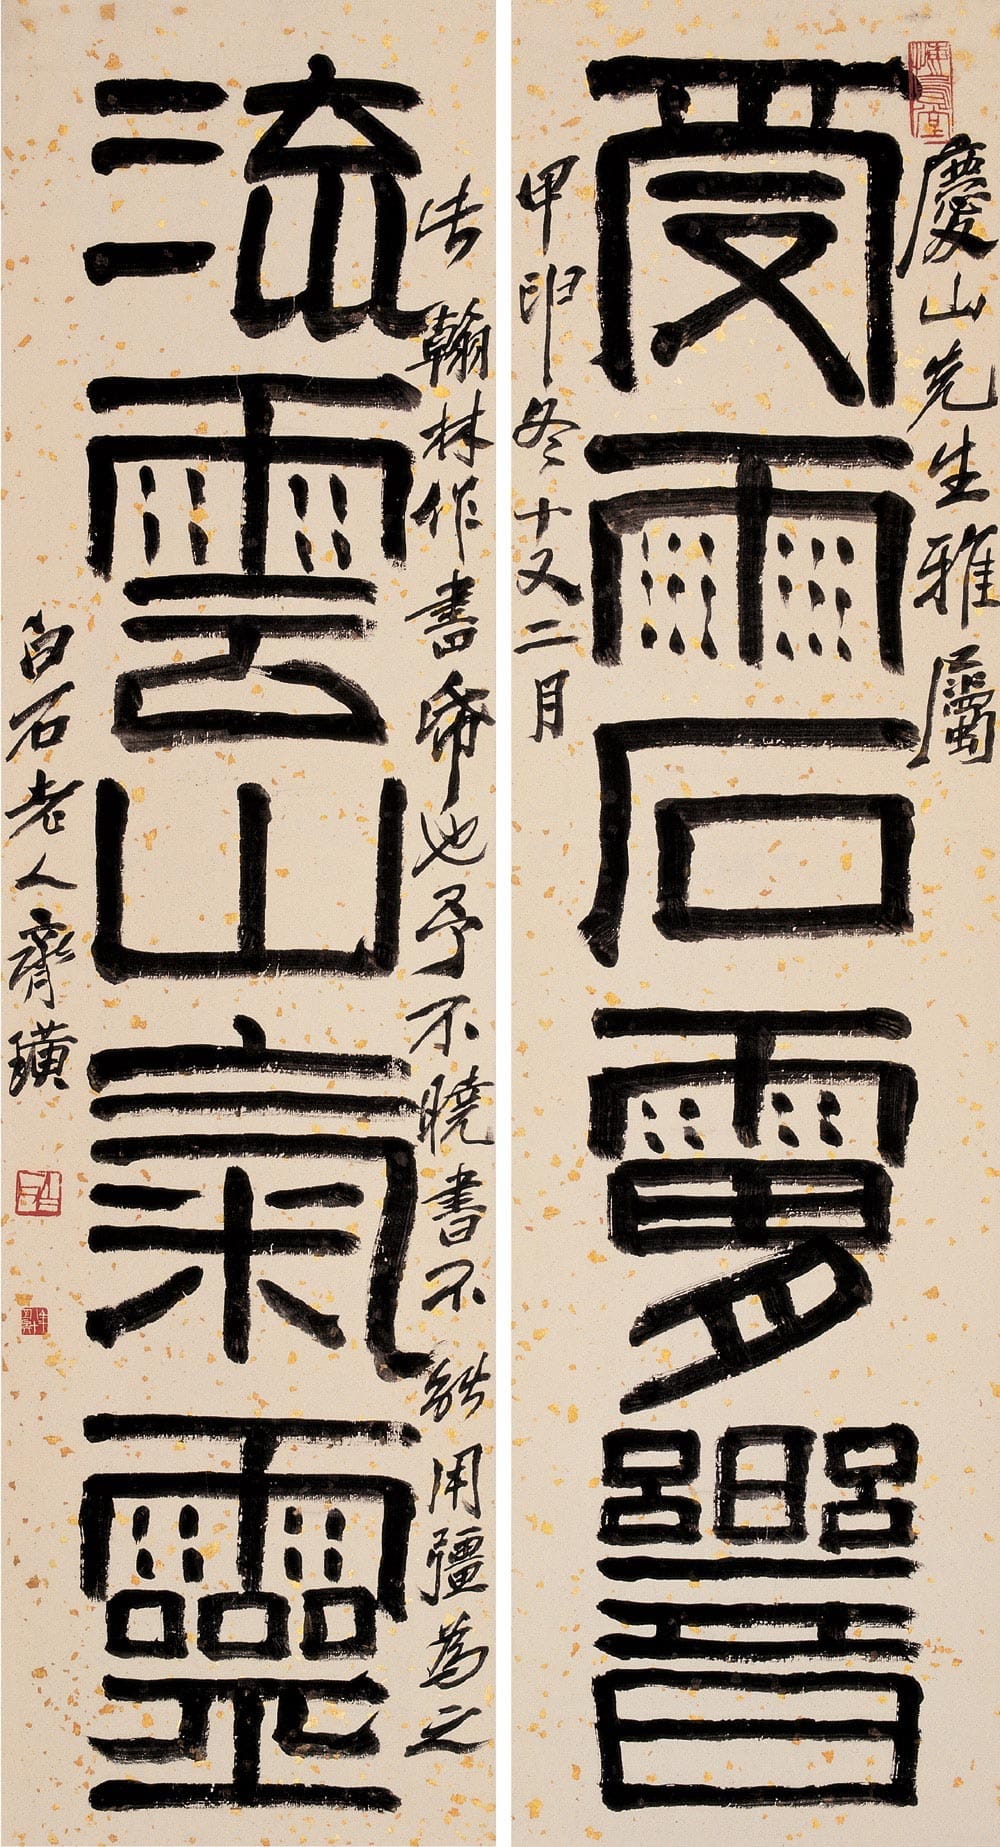 慶山先生雅屬
受雨石響
甲申冬十又二月
翰林作書也予不曉書不能用彊為之
流雲山氣靈
白石老人齊璜